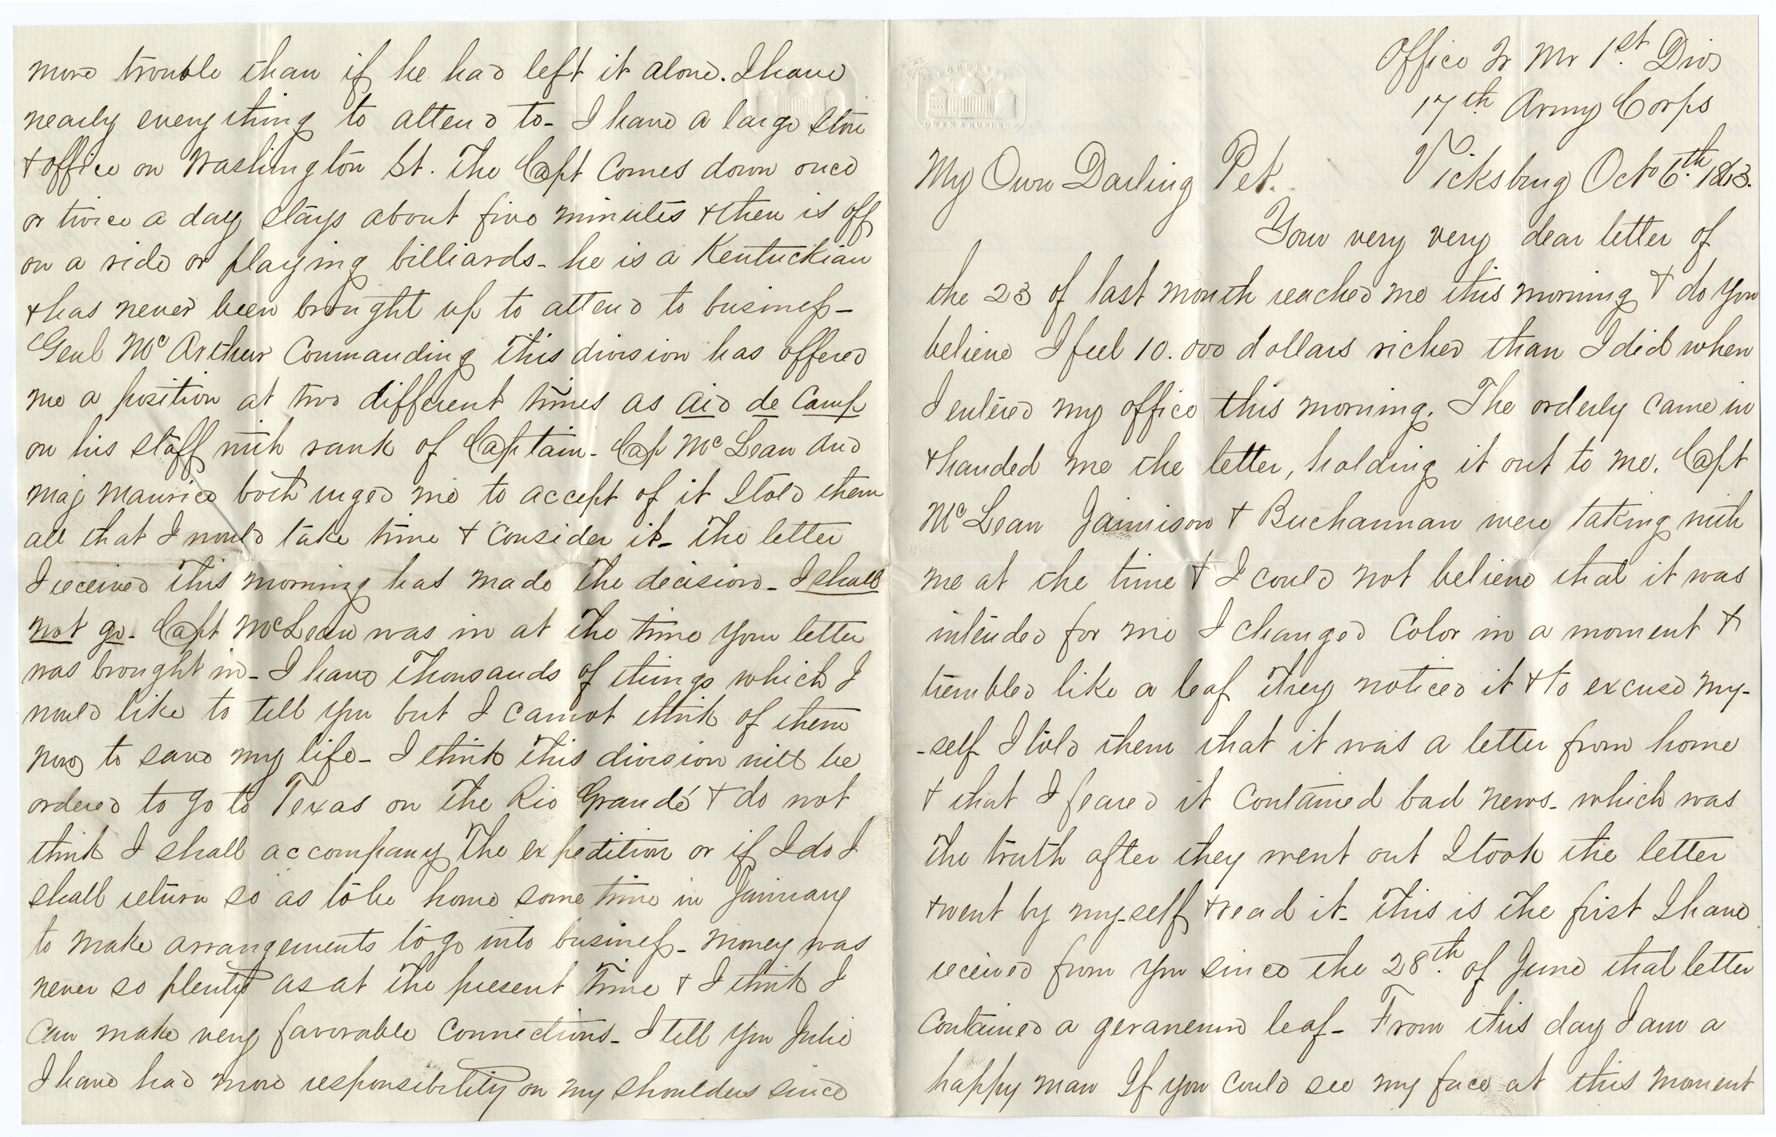 more trouble than if he had left it alone. I have
nearly everything to attend to - I have a large store
& office on Washington St. The Capt comes down once
or twice a day stays about five minutes & then is off
on a ride or playing billiards - he is a Kentuckian
& has never been brought up to attend to business -
Genl McArthur Commanding this division has offered
me a position at two different times as aid de Camp
on his staff with rank of Captain - Cap McLean and
maj Maurice both urged me to accept of it I told them
all that I would take time & consider it - The letter
I received this morning has made the decision - I shall
not go - Capt McLean was in at the time your letter
was brought in - I have thousands of things which I
would like to tell you but I cannot think of them
now to save my life - I think this division will be
ordered to go to Texas on the Rio Grandé & do not
think I shall accompany the expedition or if I do I
shall return so as to be home some time in January
to make arrangements to go into business - money was
never so plenty as at the present time & I think I
can make very favorable connections - I tell you Julie
I have had more responsibility on my shoulders since
Office Qr Mr 1st. Div
17th Army Corps
Vicksburg Oct 6th. 1863.
My Own Darling Pet.
Your very very dear letter of
the 23 of last month reached me this morning & do you
believe I feel 10.000 dollars richer than I did when
I entered my office this morning. The orderly came in
& handed me the letter, holding it out to me. Capt
McLean Jamison & Buchannan were talking with
me at the time & I could not believe that it was
intended for me I changed color in a moment &
trembled like a leaf they noticed it & to excuse my-
-self I told them that it was a letter from home
& that I feared it contained bad news - which was
the truth after they went out I took the letter
& went by my-self & read it - This is the first I have
received from you since the 28th. of June that letter
contained a geraneum leaf - From this day I am a
happy man If you could see my face at this moment